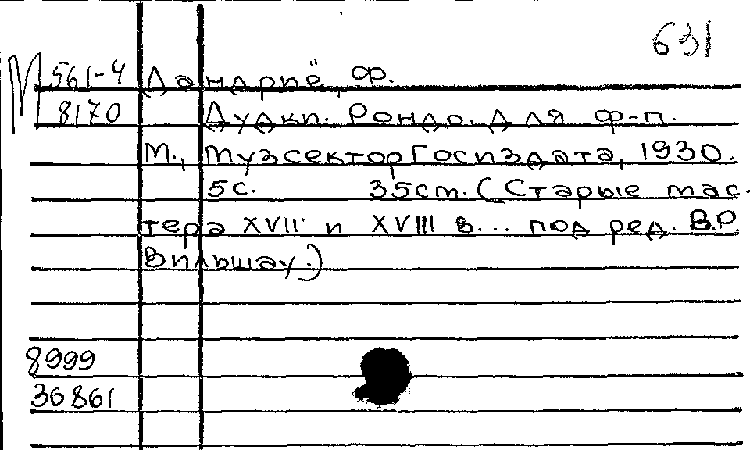 631
М 561-4 Дандриё, Ф.
8170 Дудки. Рондо. Для ф-п.
М., Музсектор Госиздата, 1930.
5с. 35см. (Старые мас-
тера XVII и XVIII в... под ред. В.Р
Вильшау.)
8999
36861